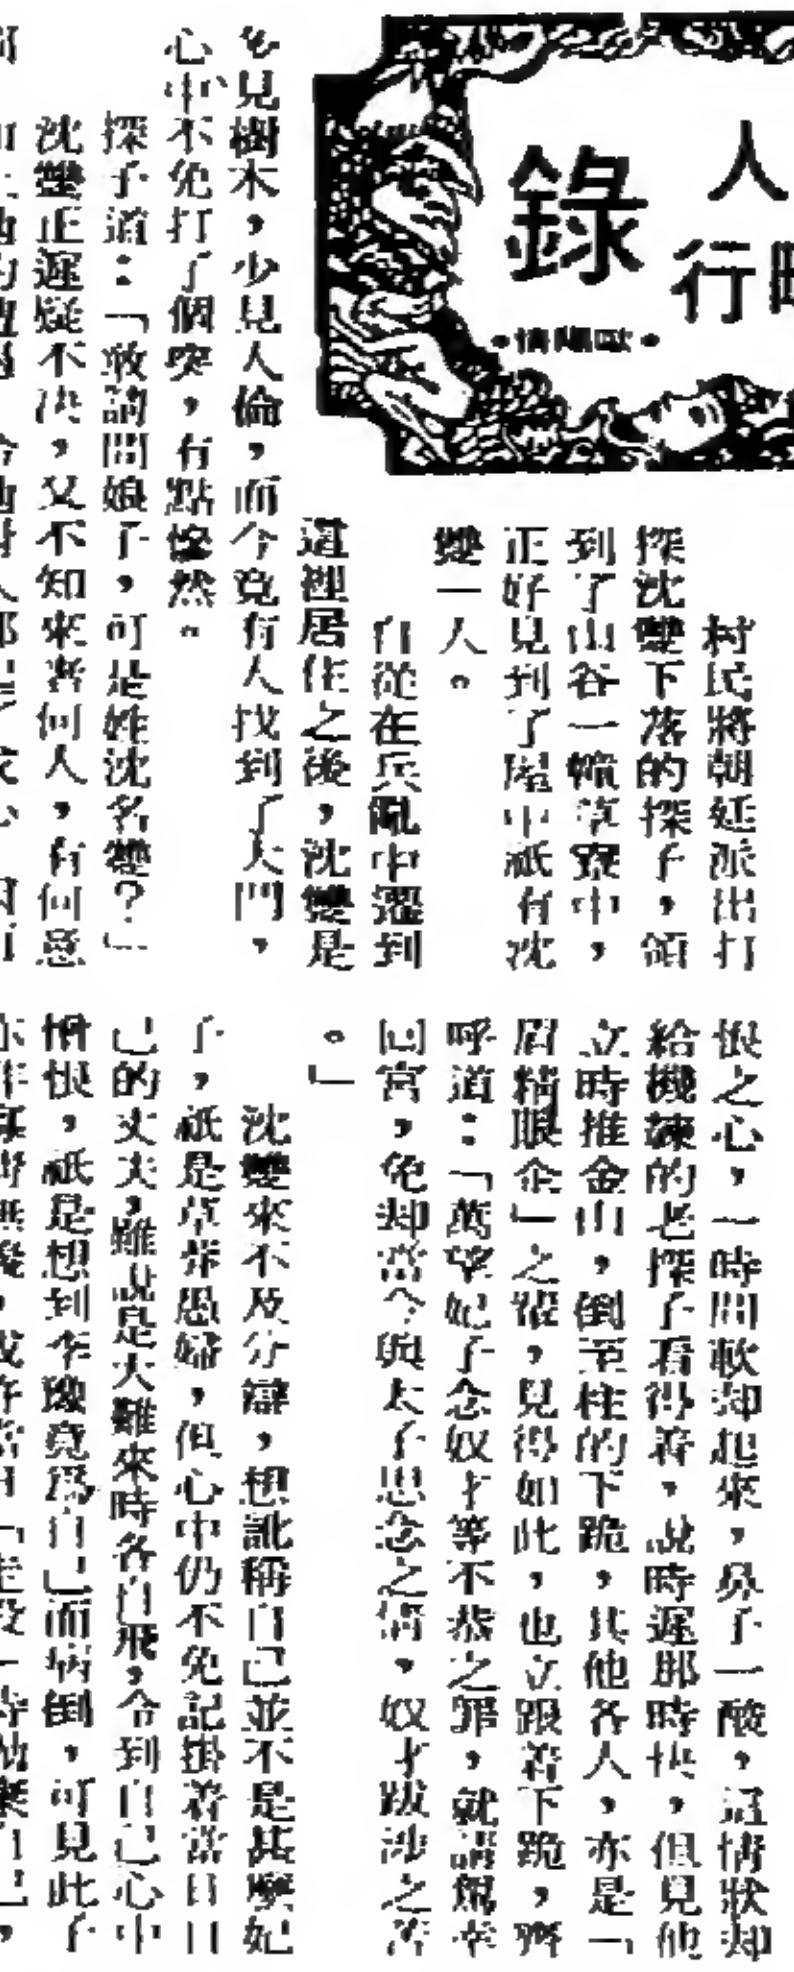 人
行
錄
•情陽歐•
村民將朝廷派出打
探沈雙下落的探子，領
到了山谷一幢草寮中，
正好見到了屋中祇有沈
雙一人。
自從在兵亂中躍到
這裡居住之後，沈雙是
多見樹木，少見人倫，而今竟有人找到了大門，
心中不免打了個突，有點愕然。
探子道：「敢請問娘子，可是姓沈名雙？」
沈雙正遲疑不決，又不知來者何人，有何意
恨之心，一時間軟却起來，鼻子一酸，這情狀却
給機諫的老探子看得着，說時遲那時快，但見他
立時推金山，倒玉柱的下跪，其他各人，亦是「
眉精眼企」之輩，見得如此，也立跟着下跪，齊
呼道：「萬望妃子念奴才等不恭之罪，就請駕幸
回宮，免却當今與太子思念之情，奴才跋涉之苦
。」
沈雙來不及分辯，想訛稱自己並不是甚麼妃
子，祇是草莽愚婦，但心中仍不免記掛着當日自
己的丈夫，雖說是大難來時各自飛，令到自己心中
憎恨，祇是想到李豫竟爲自己而病倒，可見此子